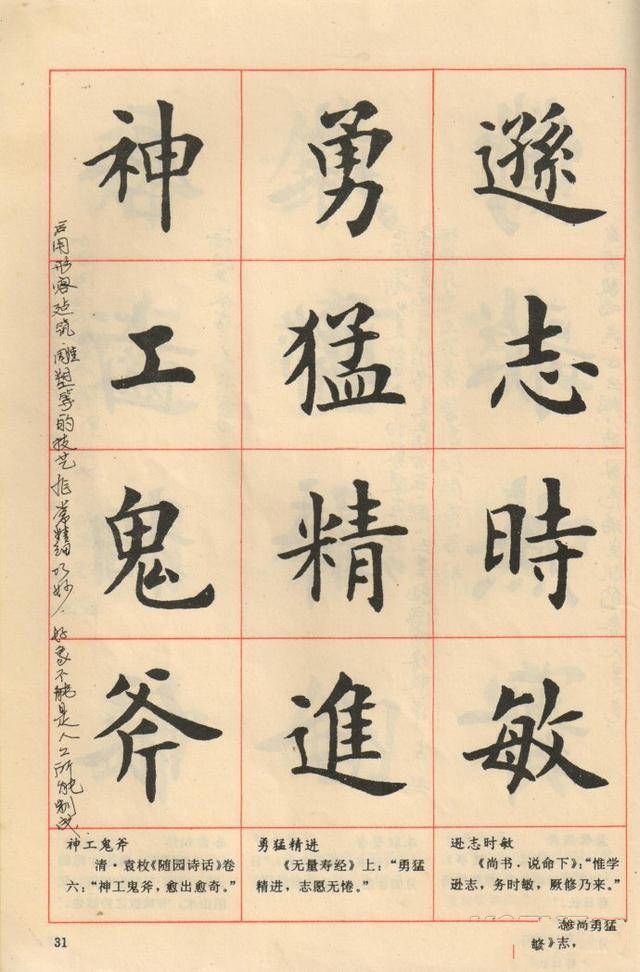 遜志時敏
勇猛精進
神工鬼斧
后用形容建筑雕塑等的技艺非常精细巧妙，好象不能是人工所能制成
神工鬼斧
清·袁枚《随园诗话》卷
六：“神工鬼斧，愈出愈奇。”
勇猛精进
《无量寿经》上：“勇猛
精进，志愿无倦。”
逊志时敏
《尚书·说命下》：“惟学
逊志，务时敏，厥修乃来。”
31
尚勇猛
志，